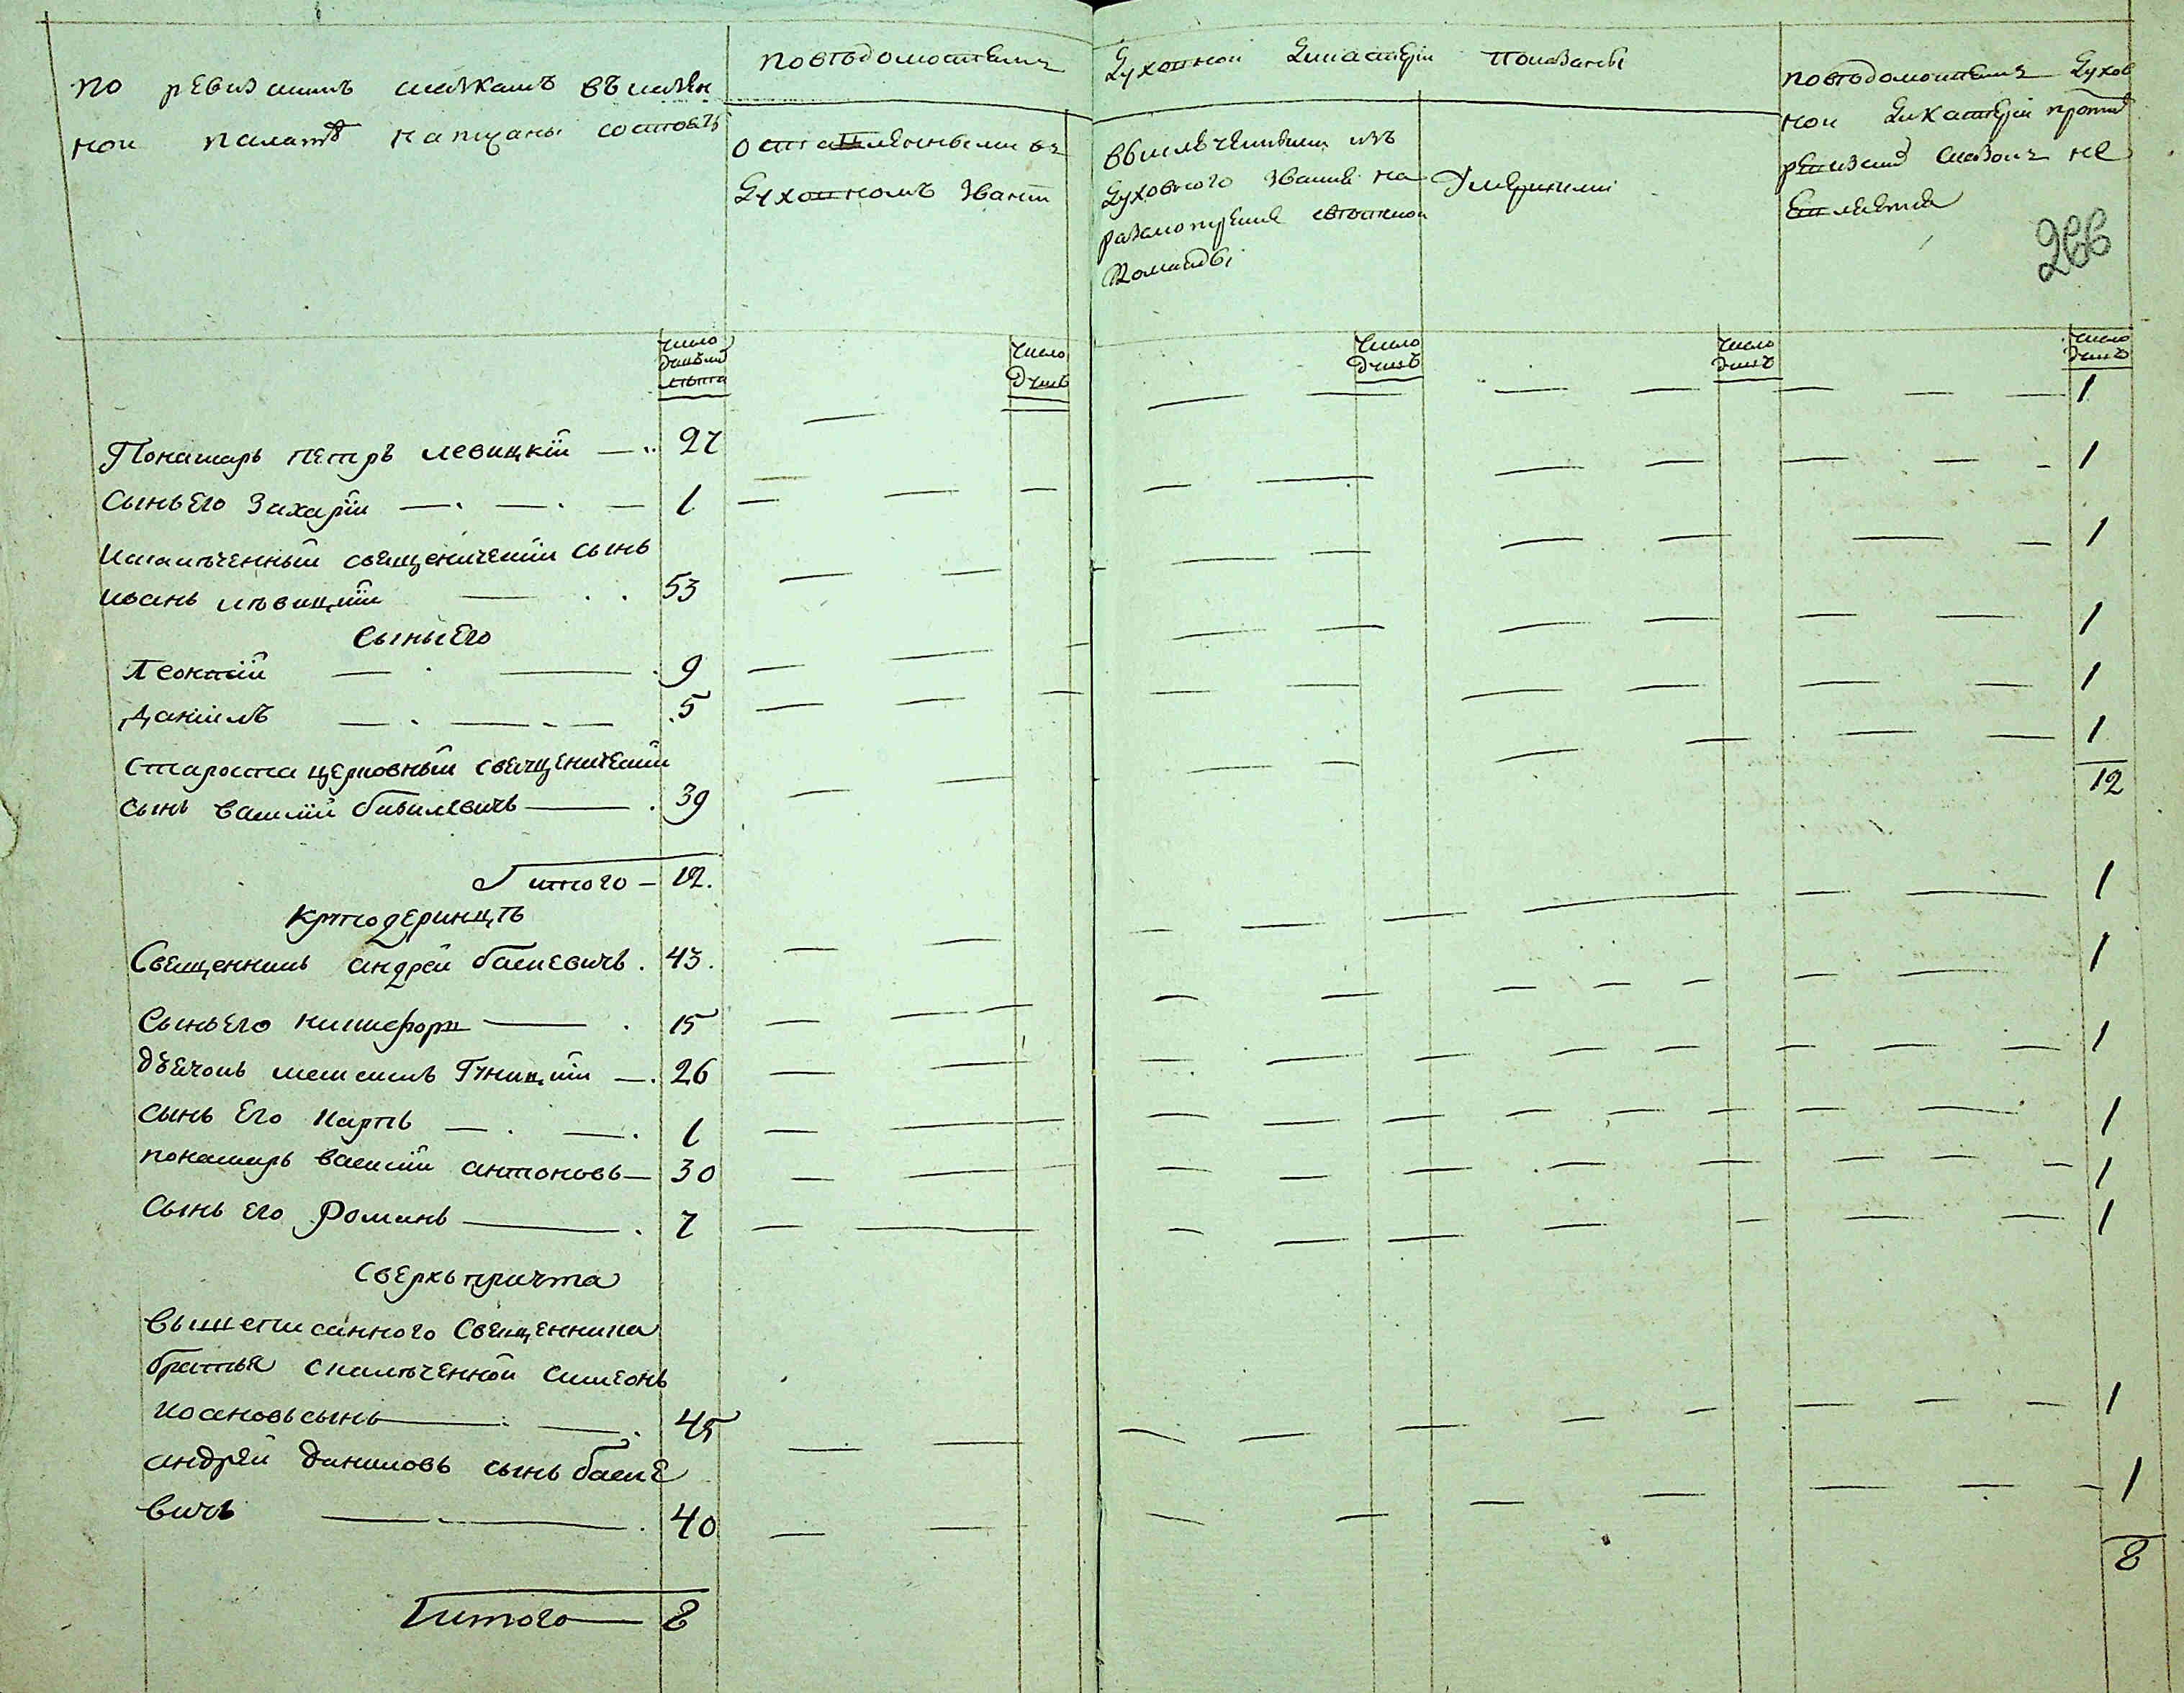 по ревизскимъ сказкамъ въ казен
ной палатѣ написаны состоятъ
повѣдомостямъ
Духовной Дикастеріи показаны
оставленными въ
Духовномъ званіи
выключенными изъ
Духовного званія на
разсмотрение свѣтской
Команды
Умершими
повѣдомостямъ Духов
ной Дикастеріи противъ
ревизскихъ сказокъ не
является
266
число
душъ
лѣта
число
Душъ
число
душъ
число
душъ
число
душъ
Понамарь петръ левицкій 27 1
Сынъ Его Захарій 1 1
Искалѣченный свещеническій сынъ
иванъ лѣвицкій 53 1
Сыны Его
Леонтій 9 1
Даніилъ 5 1
Староста церковный свещеническій
сынъ василій 39 1
12
Итого 12.
Свещенникъ андрей баскевичъ. 43. 1
Сынъ Его никифоръ 15 1
Дьячокъ 26 1
сынъ Его Карпъ 1 1
понамарь василій антоновъ 30 1
Сынъ Его Романъ 7 1
Сверхъ причта
Вышеписанного Священника
братья скалѣченной Симеонъ
иосиповъ сынъ 45 1
андрей даниловъ сынъ баске
вичъ 40 1
8
Итого 8